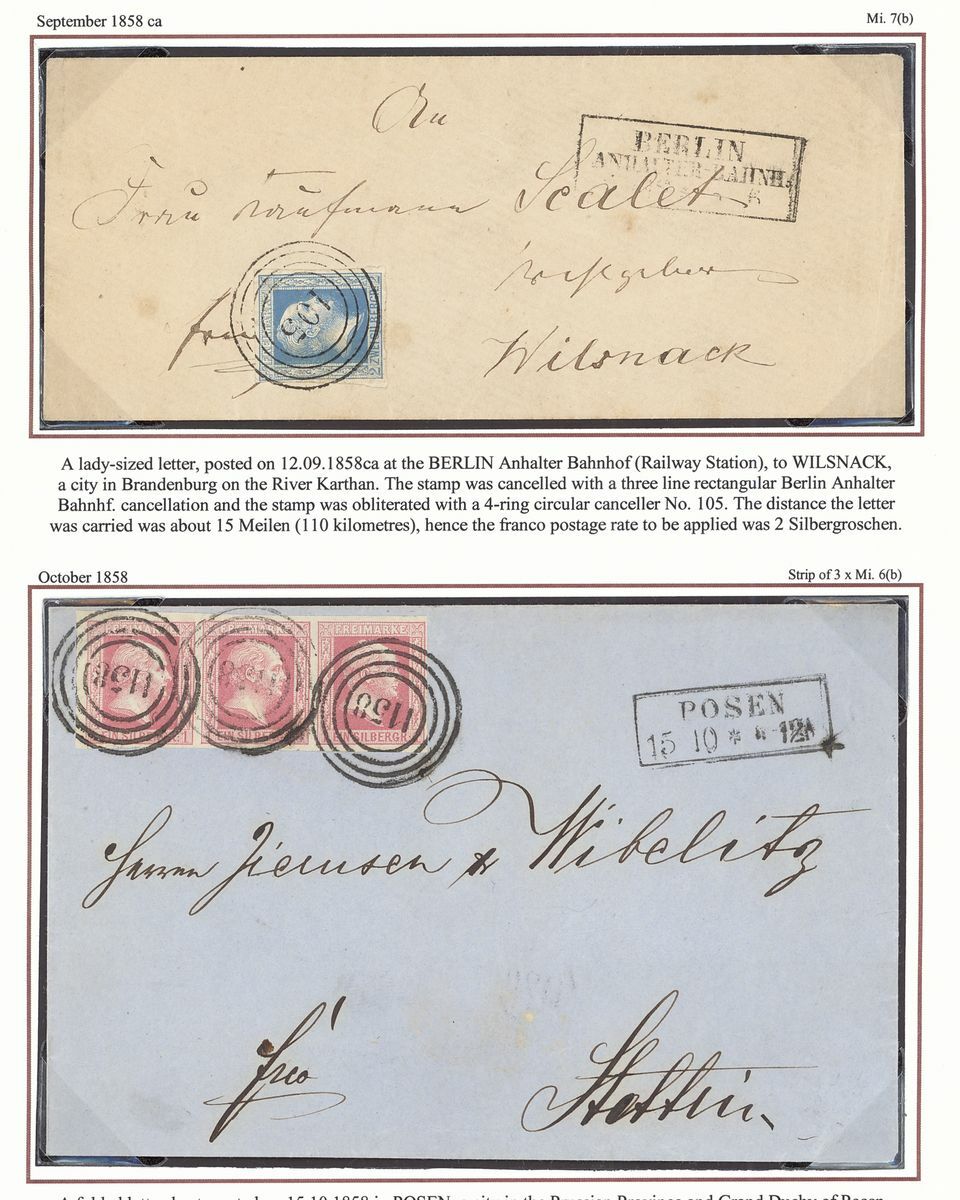 September 1858 ca
Mi. 7(b)
An
BERLIN
ANHALTER-BAHNH.
Frau Kaufmann Scalet
Wilsnack
105
2 ZWEI SILBERGR. 2
A lady-sized letter, posted on 12.09.1858ca at the BERLIN Anhalter Bahnhof (Railway Station), to WILSNACK,
a city in Brandenburg on the River Karthan. The stamp was cancelled with a three line rectangular Berlin Anhalter
Bahnhf. cancellation and the stamp was obliterated with a 4-ring circular canceller No. 105. The distance the letter
was carried was about 15 Meilen (110 kilometres), hence the franco postage rate to be applied was 2 Silbergroschen.
October 1858
Strip of 3 x Mi. 6(b)
FREIMARKE
1158 1158 1158
EIN SILBERGR.
POSEN
15 10 * 12
Herrn & Wibelitz
fco
Stettin